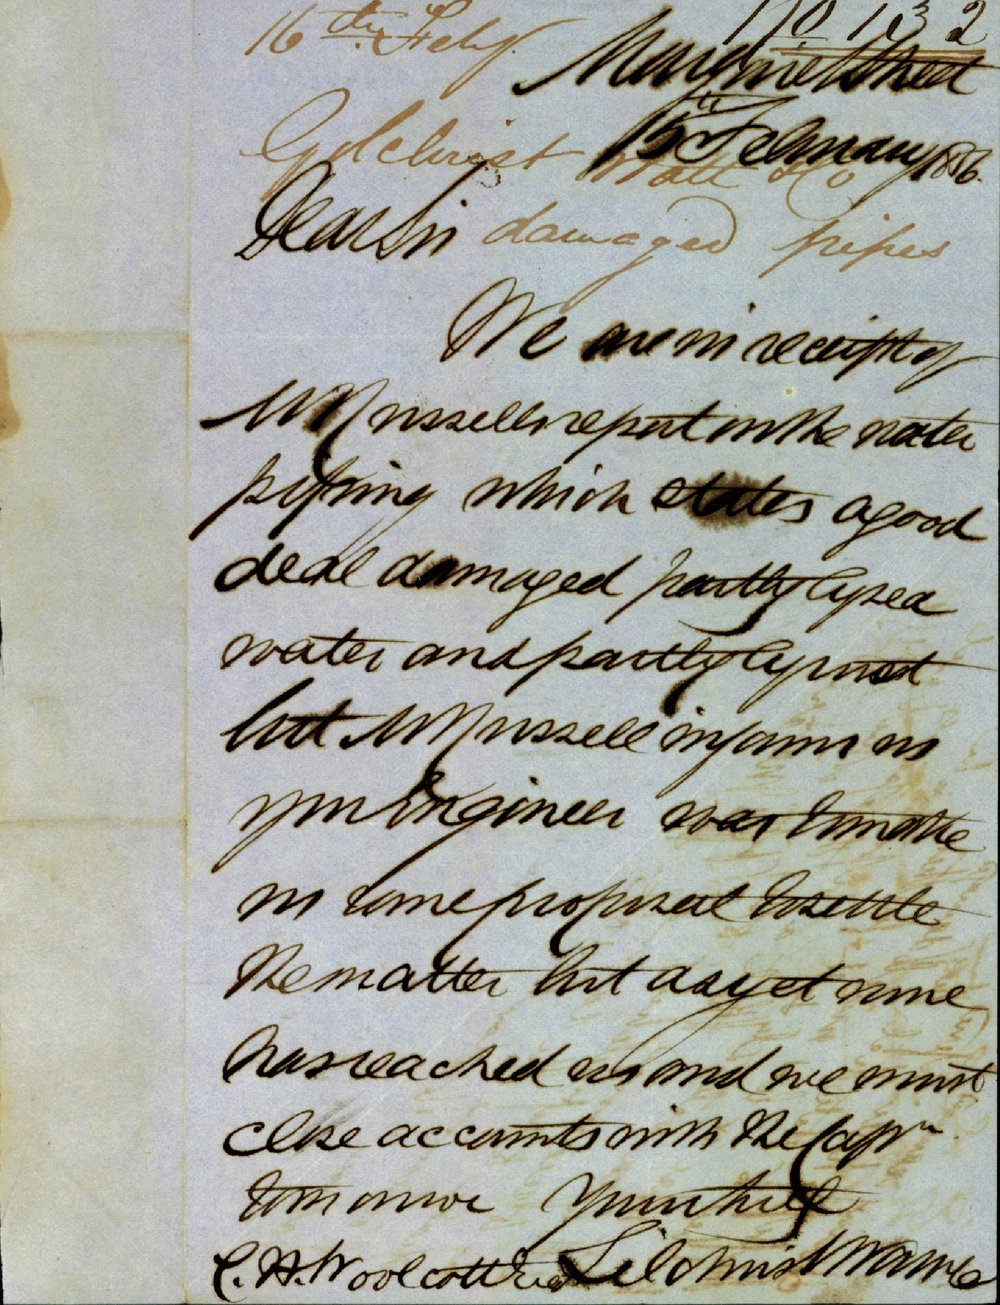 No 132
16th Feby
Margaret Street
15th February 1856
Gilchrist Watt & Co
Dear Sir
damaged pipes
We are in receipt of
Mr Russells report on the water
piping which states a good
deal damaged partly by sea
water and partly by rust
but Mr Russell informs us
your Engineer was to make
us some proposal to settle
the matter but as yet none
has reached us and we must
close accounts with the Captn
tomorrow Yours truly
C. H. Woolcott Gilchrist Watt & Co